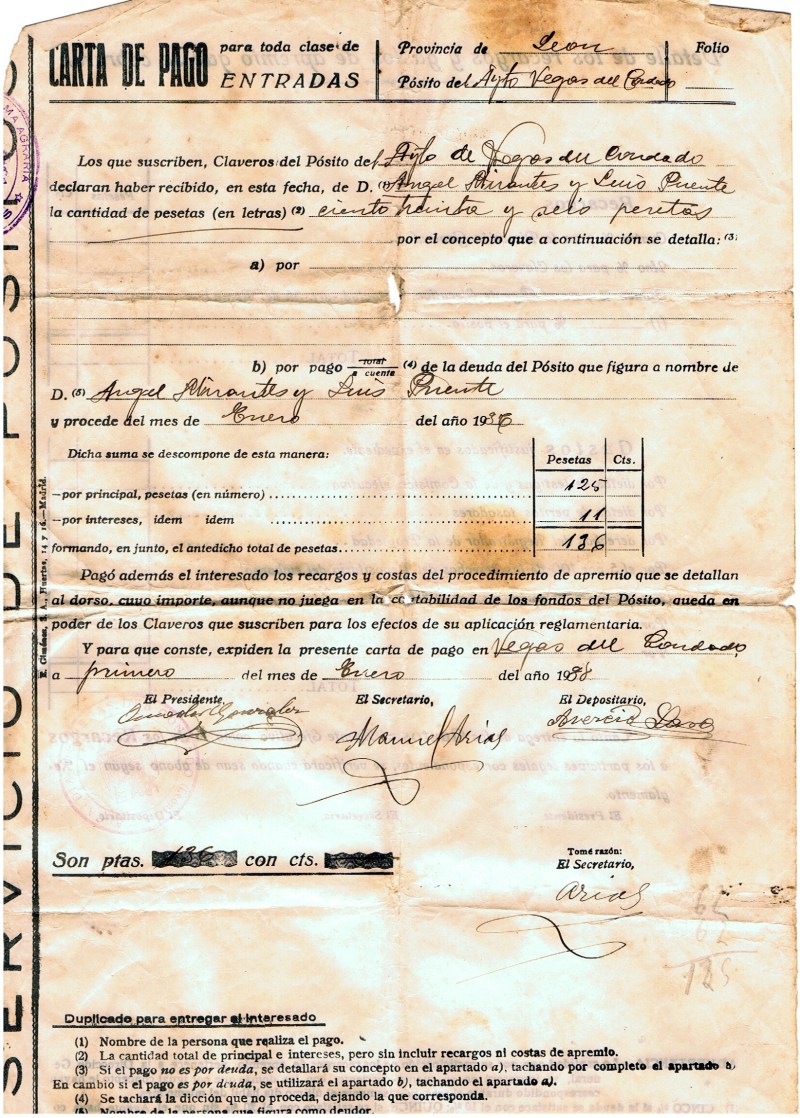 SERVICIO DE POSITOS
CARTA DE PAGO para toda clase de ENTRADAS
Provincia de Leon Folio
Pósito del Ayto Vegas del Condado
Los que suscriben, Claveros del Pósito del Ayto de Vegas del Condado
declaran haber recibido, en esta fecha, de D. (1) Angel Mirantes y Luis Puente
la cantidad de pesetas (en letras) (2) ciento treinta y seis pesetas
por el concepto que a continuación se detalla: (3)
a) por
b) por pago total a cuenta (4) de la deuda del Pósito que figura a nombre de
D. (5) Angel Mirantes y Luis Puente
y procede del mes de Enero del año 1936
Dicha suma se descompone de esta manera:
Pesetas Cts.
—por principal, pesetas (en número) 125
—por intereses, idem idem 11
formando, en junto, el antedicho total de pesetas 136
Pagó además el interesado los recargos y costas del procedimiento de apremio que se detallan
al dorso, cuyo importe, aunque no juega en la contabilidad de los fondos del Pósito, queda en
poder de los Claveros que suscriben para los efectos de su aplicación reglamentaria.
Y para que conste, expiden la presente carta de pago en Vegas del Condado
a primero del mes de Enero del año 1938
El Presidente, El Secretario, El Depositario,
Gonzalez
Manuel Arias
Son ptas. 136 con cts.
Tomé razón:
El Secretario,
Arias
125
Duplicado para entregar al interesado
(1) Nombre de la persona que realiza el pago.
(2) La cantidad total de principal e intereses, pero sin incluir recargos ni costas de apremio.
(3) Si el pago no es por deuda, se detallará su concepto en el apartado a), tachando por completo el apartado b)
En cambio si el pago es por deuda, se utilizará el apartado b), tachando el apartado a).
(4) Se tachará la dicción que no proceda, dejando la que corresponda.
(5) Nombre de la persona que figura como deudor.